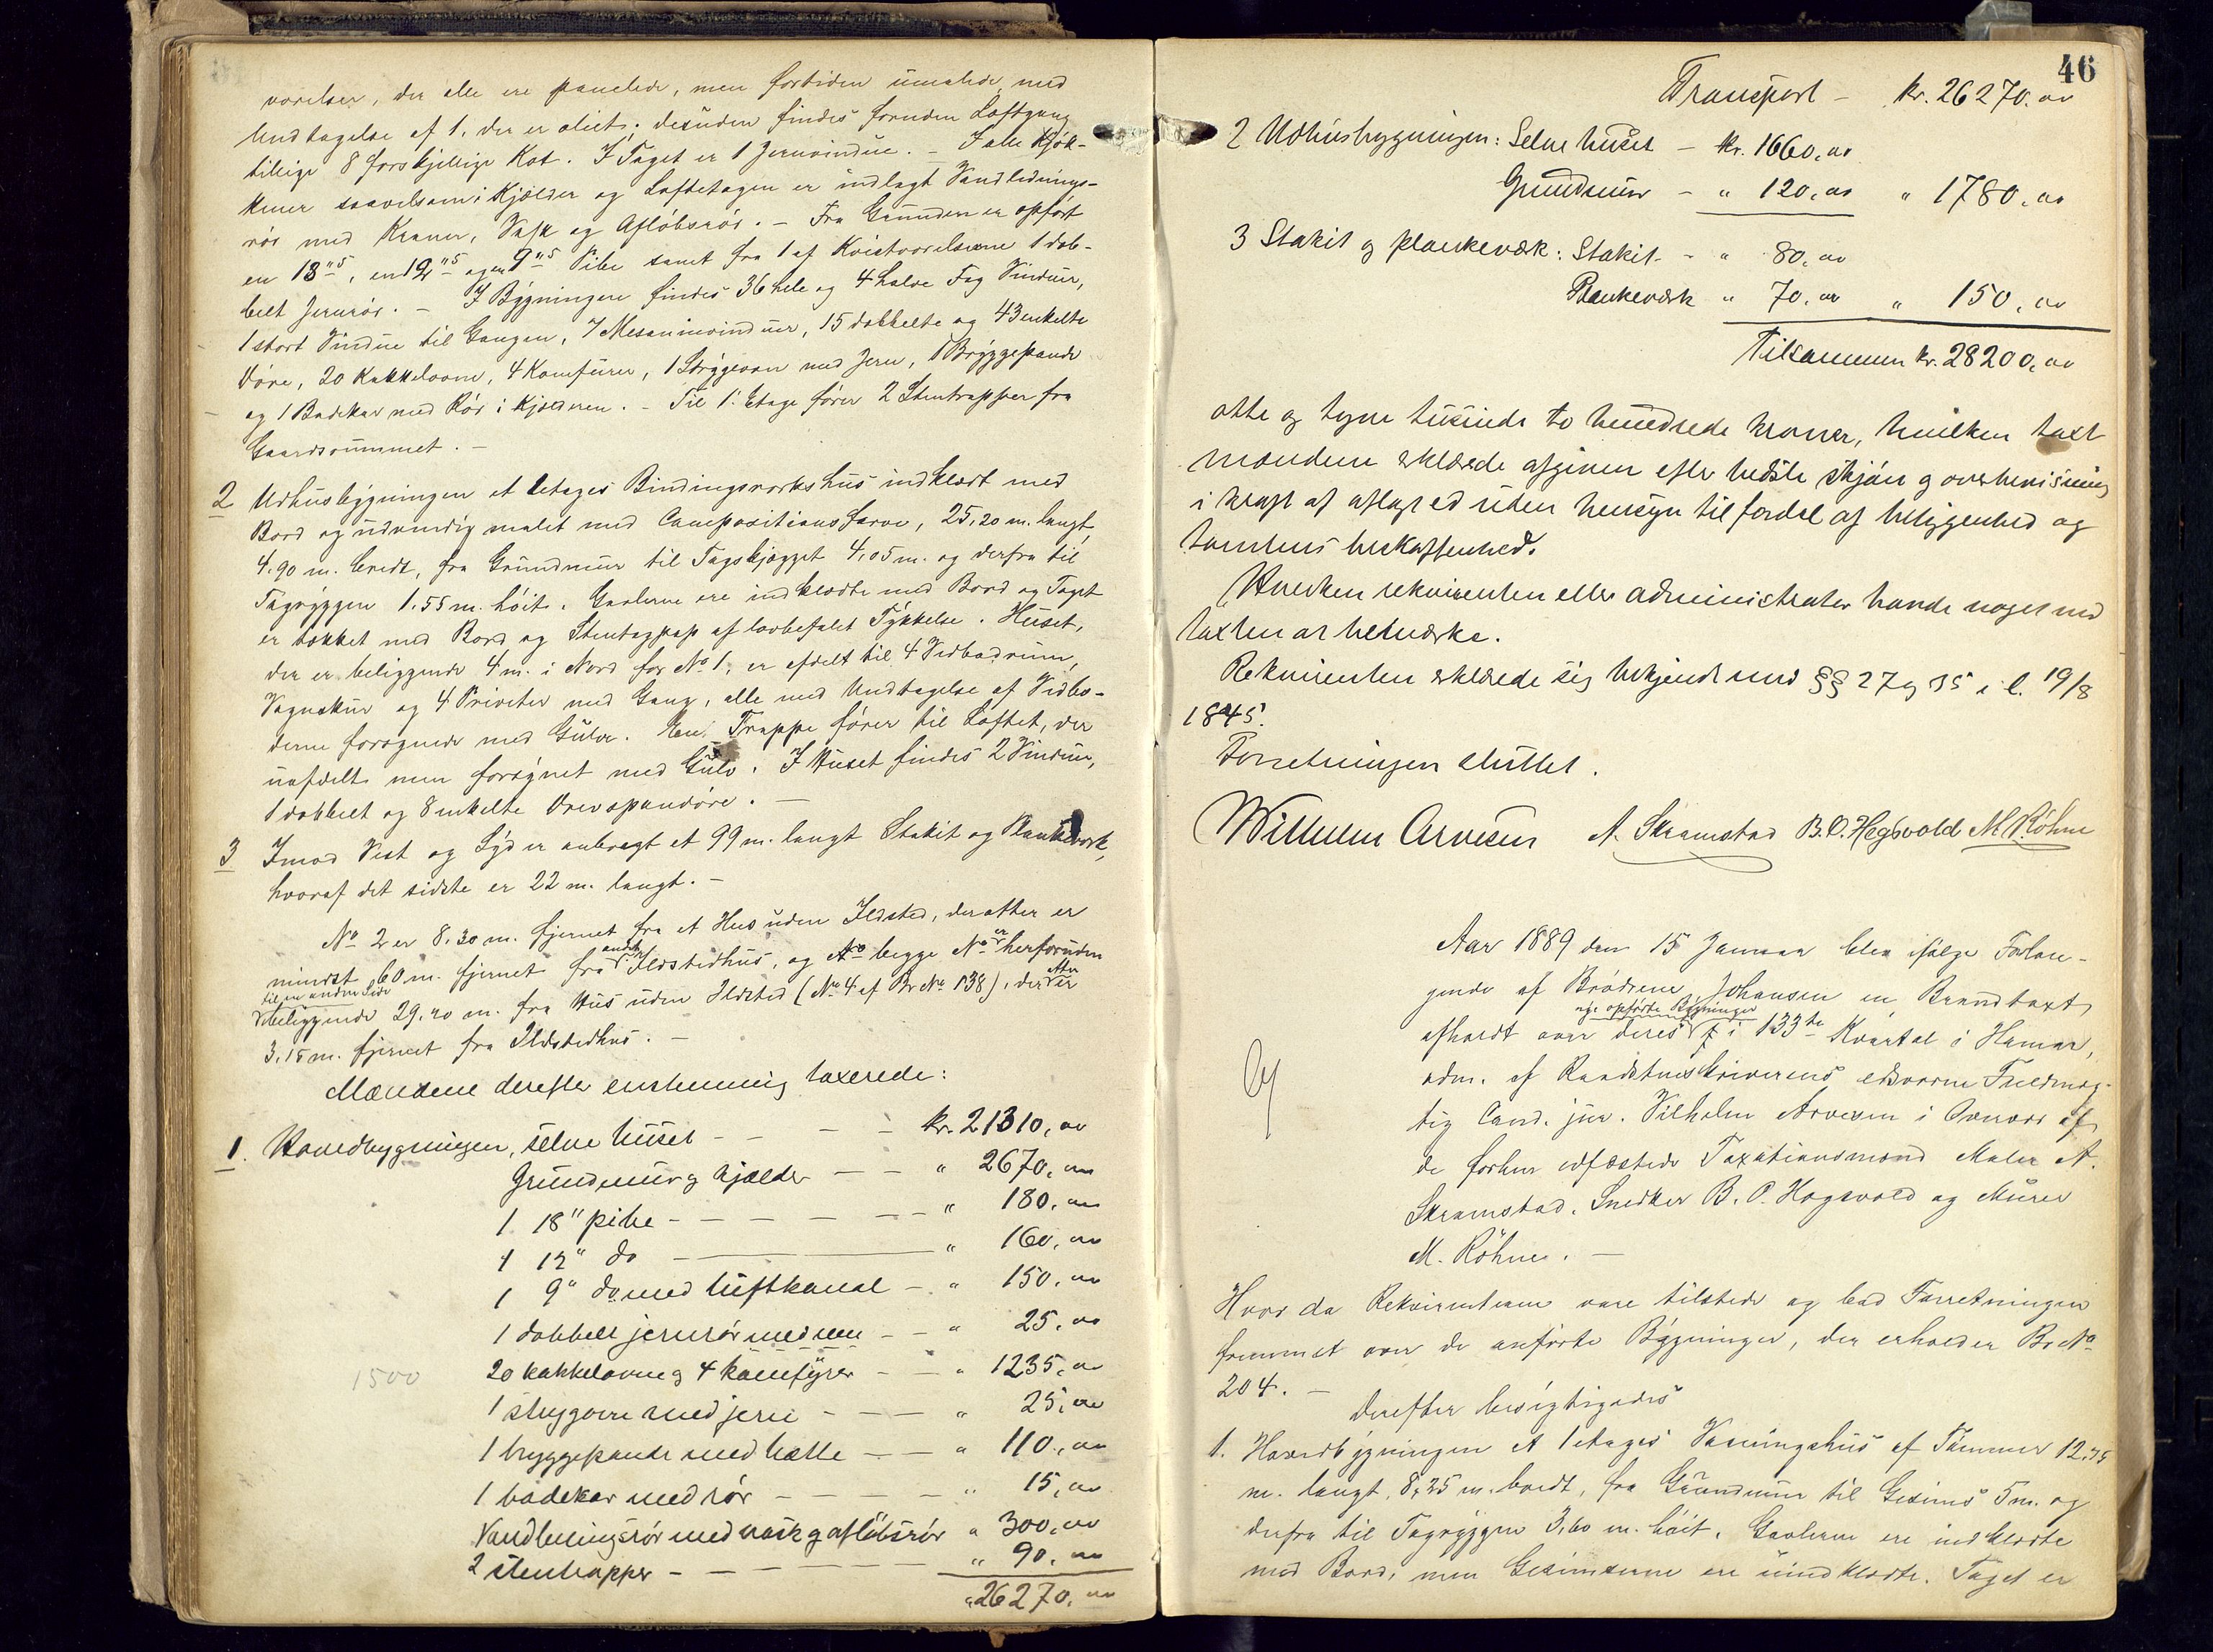 vorelser, der alle ere panelede, men fortiden umalede med
Undtagelse af 1, der er oliet; desuden findes foruden Loftgang
tillige 8 forskjellige Kot. I Taget er 1 Jernvindue. - I alle Kjök-
kener saavelsom i Kjelder og Loftetagen er indlagt Vandlednings-
rör med Kraner, Vask og Aflöbsrör. - Fra Grunden er opfört
en 18"s, en 12"s og en 9"s Pibe samt fra 1 af Kvistvorelserne 1 dob-
belt Jernrör. - I Bygningen findes 36 hele og 4 halve Fag Vinduer,
1 stort Vindue til Gangen, 7 Mesaninvinduer, 15 dobbelte og 43 enkelte
Döre, 20 Kakkelovne, 4 Komfurer, 1 Strygeovn med Jern, 1 Bryggepande
og 1 Badekar med Rör i Kjelderen. - Til 1. Etage förer 2 Stentrapper fra
Gaardsrummet. -
2 Udhusbygningen et 1 etages Bindingsverkshus indklædt med
Bord og udvendig malet med Compositionsfarve, 25,20 m. langt,
4.90 m. bredt, fra Grundmur til Tagskjægget 4,05 m. og derfra til
Tagryggen 1.55 m. höit. Gavlerne ere indklædte med Bord og Taget
er tækket med Bord og Stentagpap af lovbefalet Tykkelse. Huset,
der er beliggende 4 m. i Nord for No 1, er afdelt til 4 Vedbodrum,
Vognskur og 4 Priveter med Gang, alle med Undtagelse af Vedbo-
derne forsynede med Gulve. En Trappe förer til Loftet, der
uafdelt men forsynet med Gulv. I Huset findes 2 Vinduer,
1 dobbelt og 8 enkelte Drevapandöre. -
3 Imod Vest og Syd er anbragt et 99 m. langt Stakit og Plankeværk,
hvoraf det sidste er 22 m. langt. -
No 2 er 8.30 m. fjernet fra et Hus uden Ildsted, der atter er
mindst 60 m. fjernet fra andet Ildstedhus, og begge No er herforuden
til en anden Side beliggende 29.40 m. fra Hus uden Ildsted (No 4 af Br No 138), der atter er
3.15 m. fjernet fra Ildstedhus. -
Mændene derefter enstemmig taxerede:
1. Hovedbygningen, selve huset - - - - kr. 21310, 00
Grundmur og kjælder - - " 2670, 00
1 18" pibe - - - - - - " 180, 00
1 12" do - " 160, 00
1 9" do med luftkanal - " 150, 00
1 dobbelt jernrör - - " 25, 00
1500 20 kakkelovne og 4 komfyrer - - " 1235, 00
1 strygovn med jern - - - " 25, 00
1 bryggepande med hætte - - " 110, 00
1 badekar med rör - - - - " 15, 00
Vandledningsrör med vask og aflöbsrör " 300, 00
2 stentrapper - - - - - " 90, 00
" 26270, 00
46
Transport - Kr. 26270. 00
2 Udhusbygningen: Selve huset - kr. 1660, 00
Grundmur - " 120, 00 " 1780, 00
3 Stakit og plankeværk: Stakit - - " 80, 00
Plankeværk " 70, 00 " 150, 00
Tilsammen kr. 28200, 00
otte og tyve tusinde to hundrede kroner, hvilken taxt
mændene erklærede afgiven efter bedste skjön og overbevisning
i kraft af aflagt ed uden hensyn til fordel af beliggenhed og
tomtens beskaffenhed.
Hverken rekvirenten eller administrator havde noget ved
taxten at bemærke.
Rekvirenten erklærede sig bekjendt med §§ 27 og 35 i l. 19/8
1845.
Forretningen sluttet.
Wilhelm Arnesen A. Skramstad B. O. Hegsvold M. Röhne
Aar 1889 den 15 Januar blev ifölge Forlan-
gende af Brödrene Johansen en Brandtaxt
afholdt over deres nye opförte Bygninger i 133te Kvartal i Hamar,
adm. af Raadstueskriverens edsvorne Fuldmæg-
tig Cand. jur. Vilhelm Arnesen i Overvær af
de forhen edfæstede Taxationsmænd Maler A.
Skramstad, Snedker B. O. Hogsvold og Murer
M. Röhne. -
Hvor da Rekvirenterne vare tilstede og bad Forretningen
fremmet over de anförte Bygninger, der erholder Br No
204. -
Derefter besigtigedes
1. Hovedbygningen et 1 etages Vaaningshus af Tömmer 12.75
m. langt, 8,25 m. bredt, fra Grundmur til Gesims 5 m. og
derfra til Tagryggen 3,60 m. höit. Gavlerne ere indklædte
med Bord, men Gesimserne ere uindklædte. Taget er